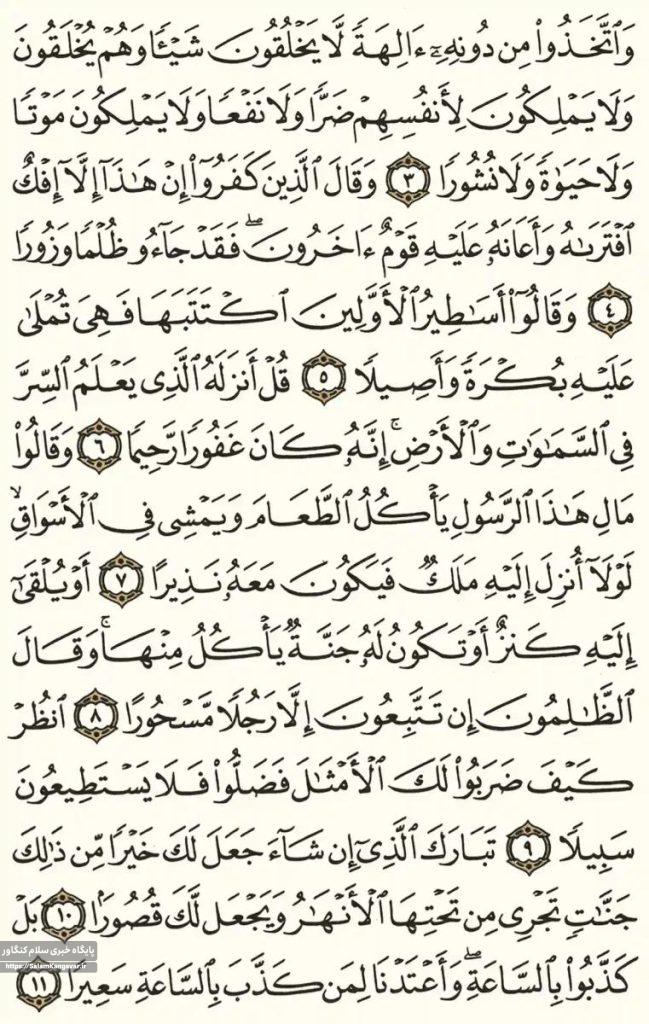 وَٱتَّخَذُوا۟ مِن دُونِهِۦٓ ءَالِهَةً لَّا يَخْلُقُونَ شَيْـًٔا وَهُمْ يُخْلَقُونَ
وَلَا يَمْلِكُونَ لِأَنفُسِهِمْ ضَرًّا وَلَا نَفْعًا وَلَا يَمْلِكُونَ مَوْتًا
وَلَا حَيَوٰةً وَلَا نُشُورًا ٣ وَقَالَ ٱلَّذِينَ كَفَرُوٓا۟ إِنْ هَـٰذَآ إِلَّآ إِفْكٌ
ٱفْتَرَىٰهُ وَأَعَانَهُۥ عَلَيْهِ قَوْمٌ ءَاخَرُونَ ۖ فَقَدْ جَآءُو ظُلْمًا وَزُورًا
٤ وَقَالُوٓا۟ أَسَـٰطِيرُ ٱلْأَوَّلِينَ ٱكْتَتَبَهَا فَهِىَ تُمْلَىٰ
عَلَيْهِ بُكْرَةً وَأَصِيلًا ٥ قُلْ أَنزَلَهُ ٱلَّذِى يَعْلَمُ ٱلسِّرَّ
فِى ٱلسَّمَـٰوَٰتِ وَٱلْأَرْضِ ۚ إِنَّهُۥ كَانَ غَفُورًا رَّحِيمًا ٦ وَقَالُوا۟
مَالِ هَـٰذَا ٱلرَّسُولِ يَأْكُلُ ٱلطَّعَامَ وَيَمْشِى فِى ٱلْأَسْوَاقِ ۙ
لَوْلَآ أُنزِلَ إِلَيْهِ مَلَكٌ فَيَكُونَ مَعَهُۥ نَذِيرًا ٧ أَوْ يُلْقَىٰٓ
إِلَيْهِ كَنزٌ أَوْ تَكُونُ لَهُۥ جَنَّةٌ يَأْكُلُ مِنْهَا ۚ وَقَالَ
ٱلظَّـٰلِمُونَ إِن تَتَّبِعُونَ إِلَّا رَجُلًا مَّسْحُورًا ٨ ٱنظُرْ
كَيْفَ ضَرَبُوا۟ لَكَ ٱلْأَمْثَـٰلَ فَضَلُّوا۟ فَلَا يَسْتَطِيعُونَ
سَبِيلًا ٩ تَبَارَكَ ٱلَّذِىٓ إِن شَآءَ جَعَلَ لَكَ خَيْرًا مِّن ذَٰلِكَ
جَنَّـٰتٍ تَجْرِى مِن تَحْتِهَا ٱلْأَنْهَـٰرُ وَيَجْعَل لَّكَ قُصُورًۢا ١٠ بَلْ
كَذَّبُوا۟ بِٱلسَّاعَةِ ۖ وَأَعْتَدْنَا لِمَن كَذَّبَ بِٱلسَّاعَةِ سَعِيرًا ١١
پایگاه خبری سلام کنگاور
https://SalamKangavar.ir